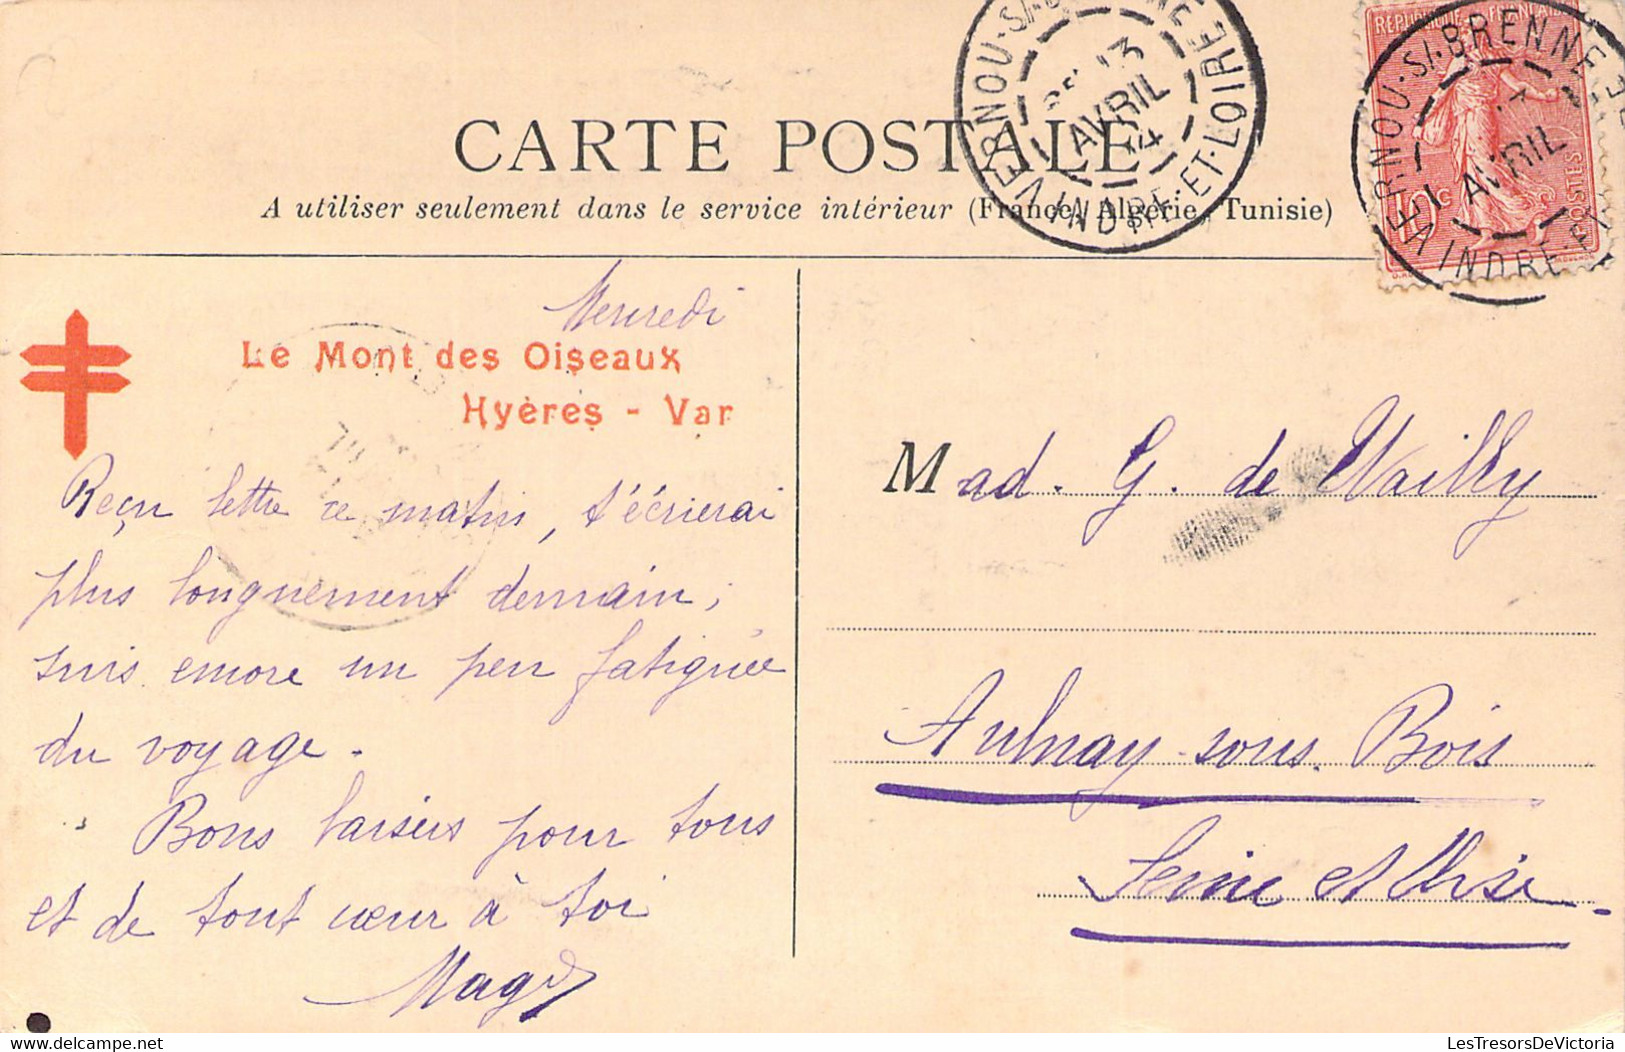 CARTE POSTALE
A utiliser seulement dans le service intérieur (France, Algérie, Tunisie)
VERNOU-S/-BRENNE
13
AVRIL
INDRE-ET-LOIRE
RÉPUBLIQUE FRANÇAISE
10c
POSTES
VERNOU-S/-BRENNE
AVRIL
INDRE-ET-
Mercredi
Le Mont des Oiseaux
Hyères - Var
Reçu lettre ce matin, t'écrierai
plus longuement demain,
suis encore un peu fatiguée
du voyage.
Bons baisers pour tous
et de tout cœur à toi
Mad. G. de Wailly
Aulnay-sous-Bois
Seine et Oise
LesTresorsDeVictoria.com